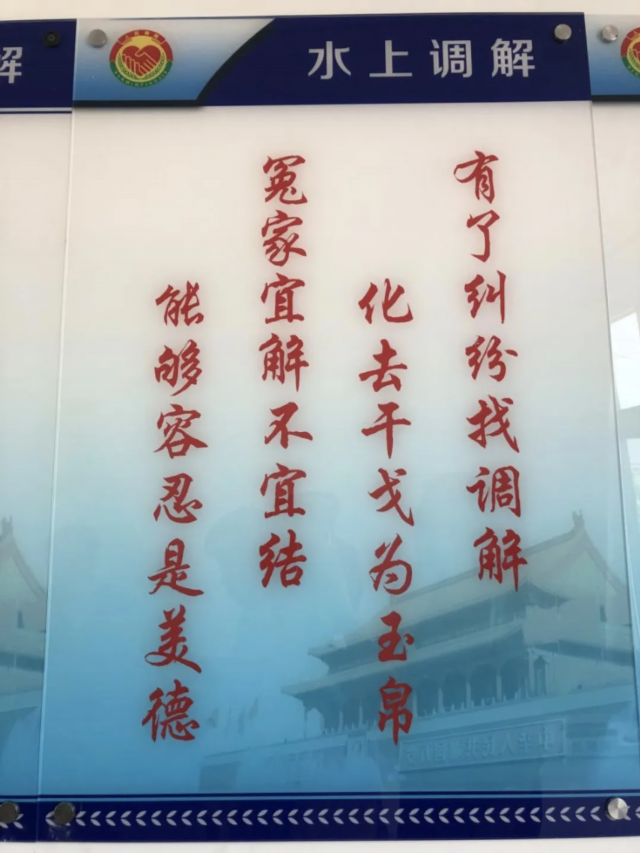 解
水上调解
有了纠纷找调解
化去干戈为玉帛
冤家宜解不宜结
能够容忍是美德